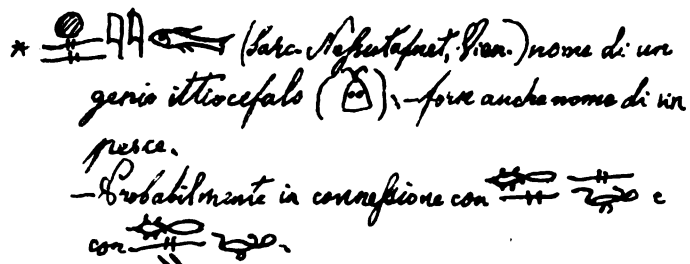 * (Sarc. Nefrutafnet, Vien.) nome di un
genio ittiocefalo ( ), – forse anche nome di un
pesce.
– Probabilmente in connessione con e
con .